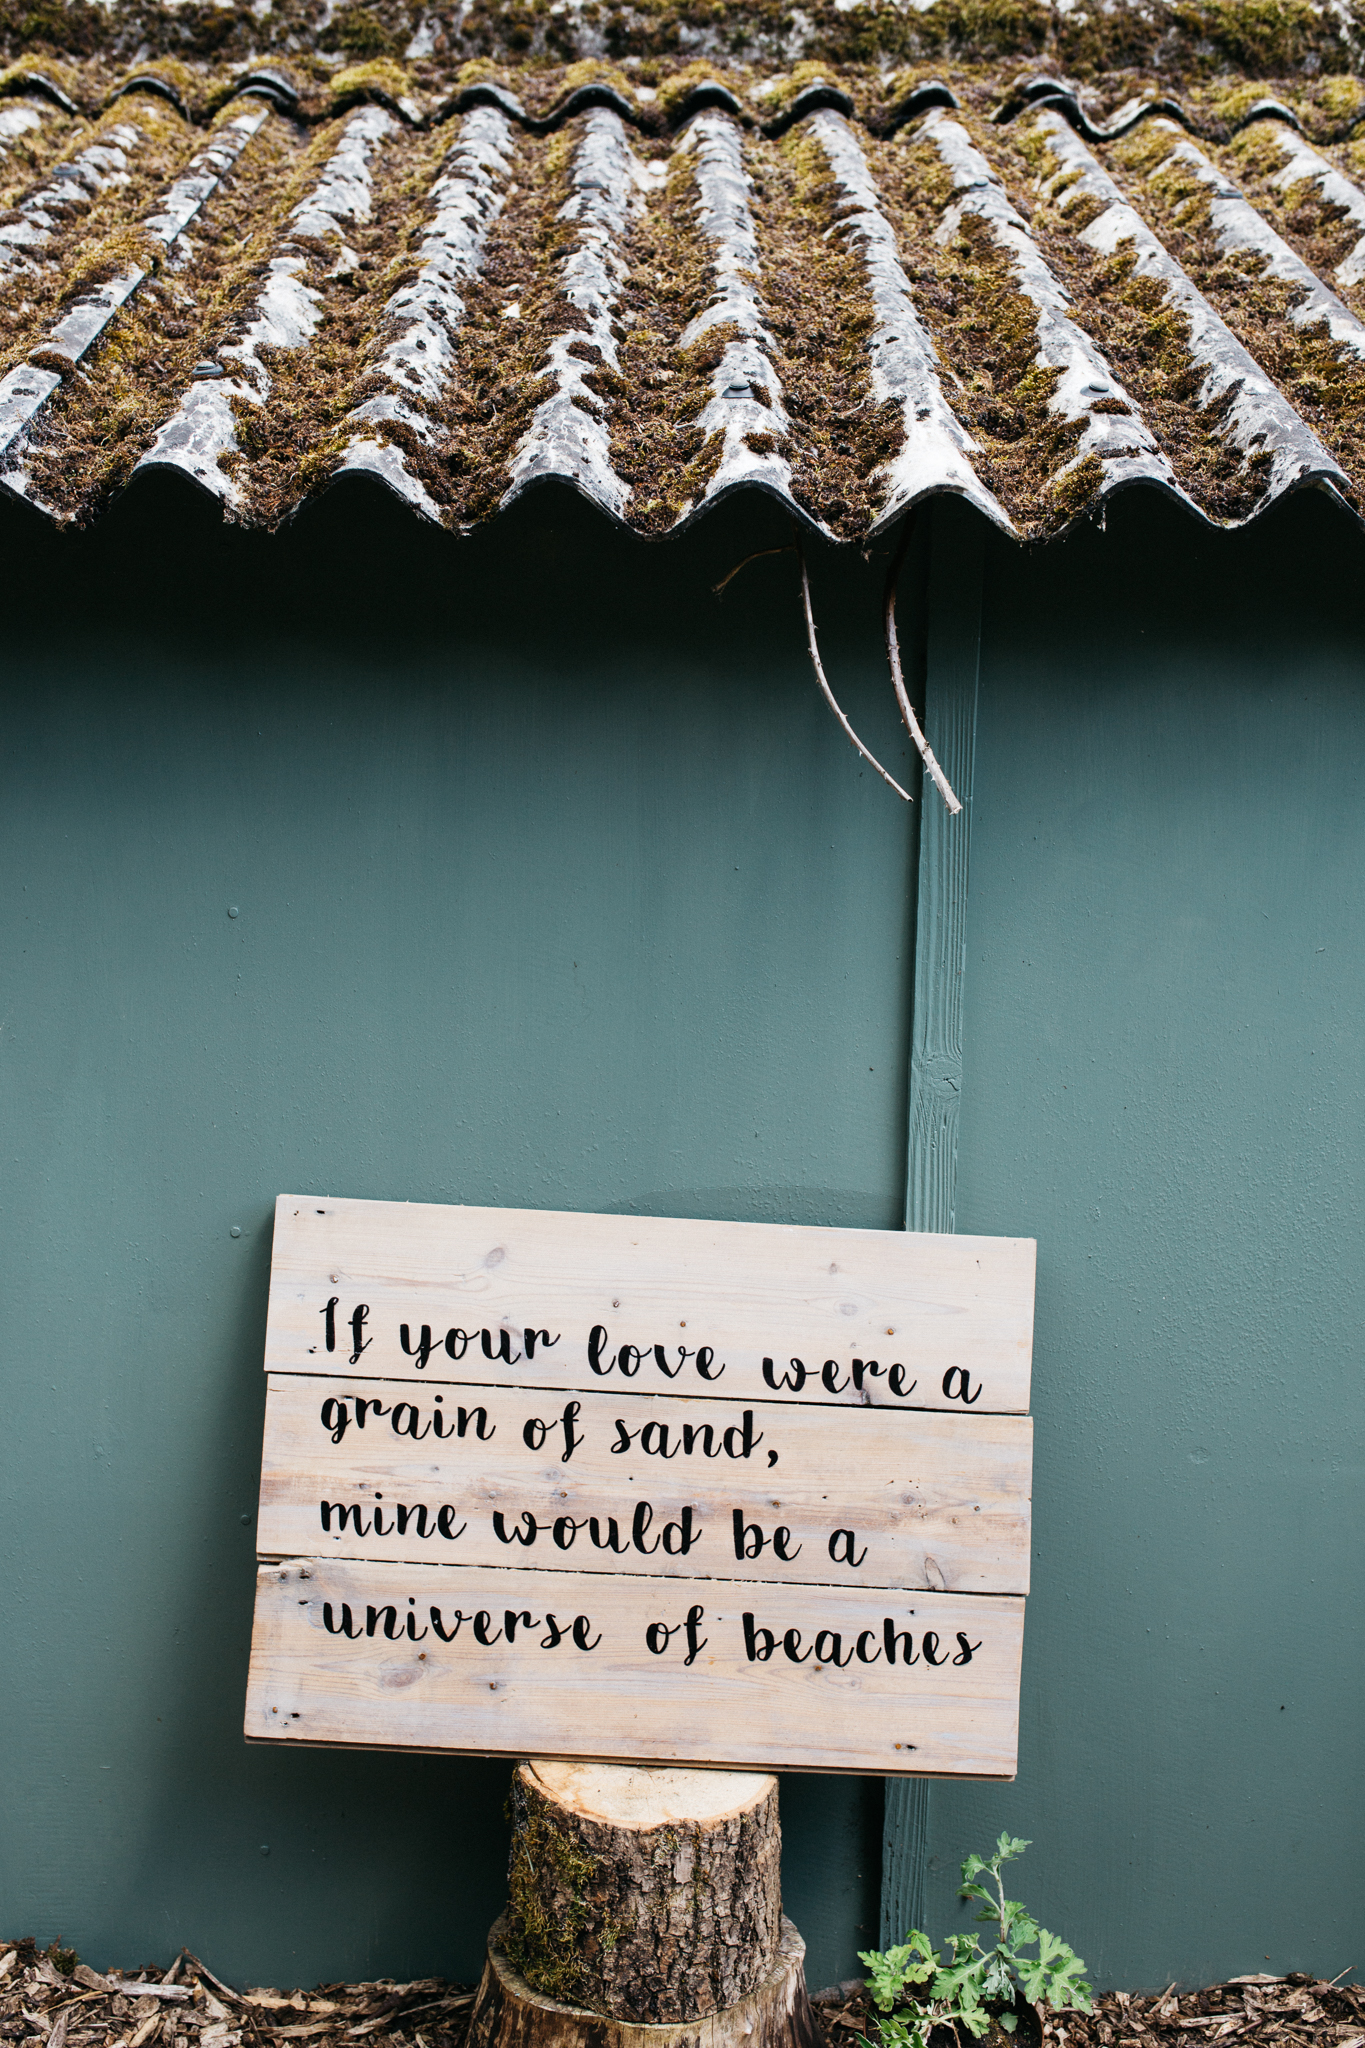 If your love were a
grain of sand,
mine would be a
universe of beaches